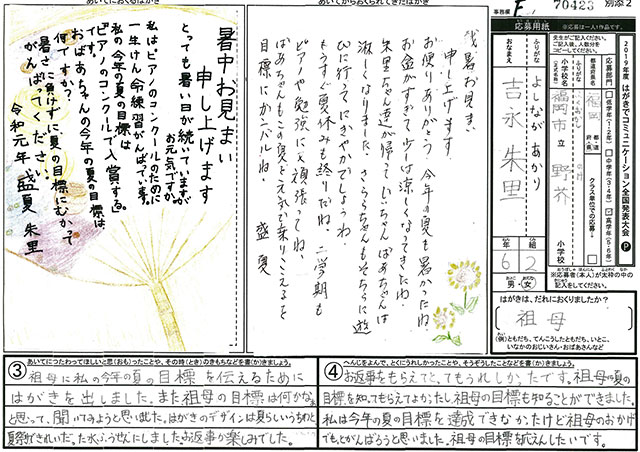 あいてにおくるはがき
暑中お見まい
申し上げます
とっても暑い日が続いていますが、
お元気ですか。
私はピアノのコンクールのために
一生けん命練習がんばっています。
私の今年の夏の目標は
「ピアノのコンクールで入賞する。」
です。
おばあちゃんの今年の夏の目標は
何ですか?
暑さに負けずに夏の目標にむかって
がんばってください。
令和元年 盛夏 朱里
あいてからおくられてきたはがき
残暑お見まい
申し上げます
お便りありがとう 今年の夏も暑かったね、
お盆がすぎて少しは涼しくなってきたね。
朱里ちゃん達が帰って、いちばんばあちゃんは
淋しくなりました。さららちゃんもそちらに遊
びに行ってにぎやかでしょうね
もうすぐ夏休みも終りだね、二学期も
ピアノや勉強に又頑張ってね、
ばあちゃんもこの夏を元気で乗りこえるを
目標にガンバルね。
盛夏
事務欄
70423
別添2
応募用紙
※応募は一人1作品です。
2019年度 はがきでコミュニケーション全国発表大会
先生がご記入ください。
ご記入後、人数分を
コピーしてください。
応募部門
低学年(1・2年)
中学年(3・4年)
高学年(5・6年)
クラス単位での応募
都道府県名
福岡
都 道 府 県
小学校名
ふりがな
福岡市立 野芥
小学校
おなまえ
ふりがな
よしなが あかり
吉永 朱里
年
組
6
2
男・女
※応募者(本人)が太枠の中の
記入をしてください。
はがきは、だれにおくりましたか?
祖母
(例)ともだち、てんこうしたともだち、いとこ、
いなかのおじいさん・おばあさんなど
③
あいてにつたわってほしいと思(おも)ったことや、その時(とき)のきもちなどを書(か)きましょう。
祖母に私の今年の夏の目標を伝えるために
はがきを出しました。また祖母の目標は何かなぁ
と思って、聞いてみようと思いました。はがきのデザインは夏らしいうちわと
夏祭でれいだった水ふうせんにしました。お返事が楽しみでした。
④
へんじをよんで、とくにうれしかったことや、そうぞうしたことなどを書(か)きましょう。
お返事をもらえてとってもうれしかったです。祖母の夏の
目標を知ってもらえてよかったし、祖母の目標も知ることができました。
私は今年の夏の目標を達成できなかったけど祖母のおかげ
でもっとがんばろうと思いました。祖母の目標を応えんしたいです。